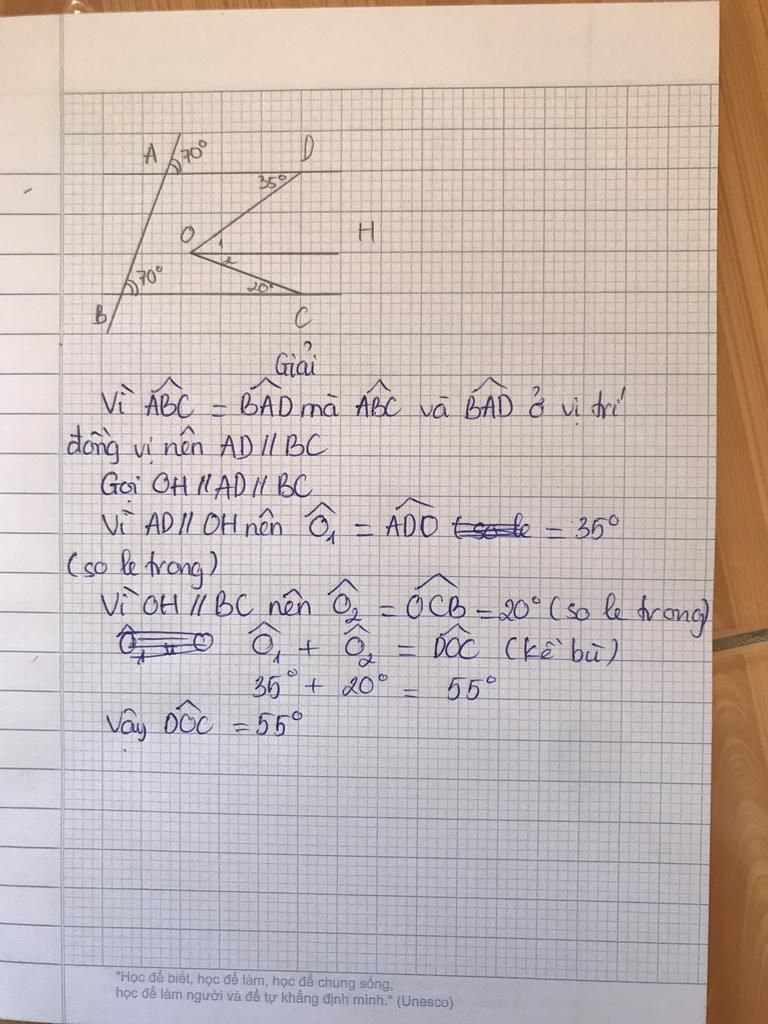 A 70° D
35°
O 1 H
2
70° 20°
B C
Giải
Vì ABC = BAD mà ABC và BAD ở vị trí
đồng vị nên AD // BC
Gọi OH // AD // BC
Vì AD // OH nên Ô₁ = ADO = 35°
(so le trong)
Vì OH // BC nên Ô₂ = OCB = 20° (so le trong)
Ô₁ + Ô₂ = DOC (kề bù)
35° + 20° = 55°
Vậy DOC = 55°
"Học để biết, học để làm, học để chung sống,
học để làm người và để tự khẳng định mình." (Unesco)